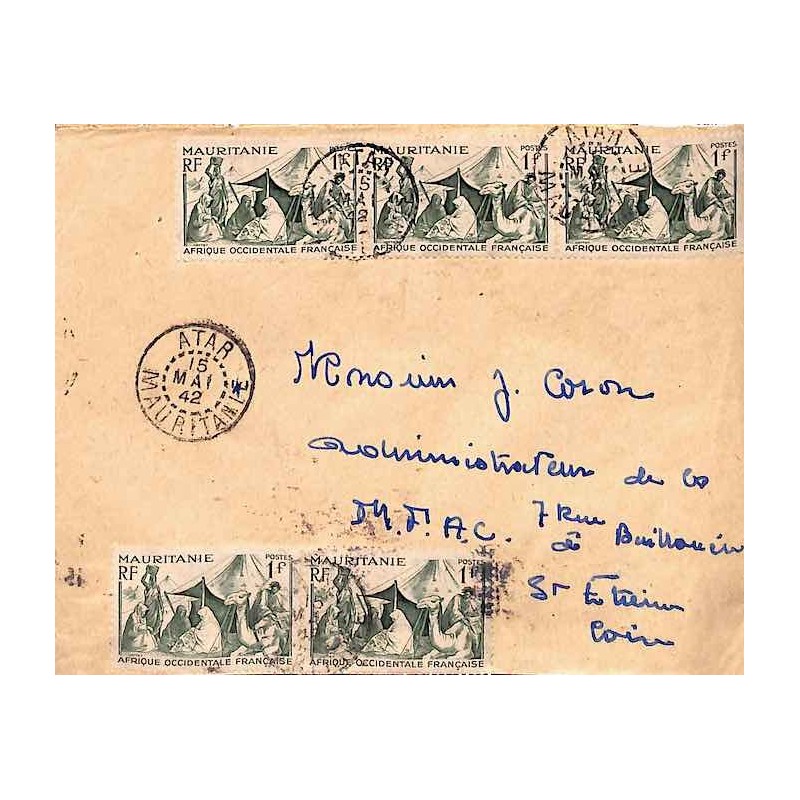 MAURITANIE POSTES
RF 1f
AFRIQUE OCCIDENTALE FRANÇAISE
MAURITANIE POSTES
RF 1f
AFRIQUE OCCIDENTALE FRANÇAISE
MAURITANIE POSTES
RF 1f
AFRIQUE OCCIDENTALE FRANÇAISE
ATAR
ATAR
ATAR
15
MAI
42
MAURITANIE
Monsieur J. Coron
Administrateur de la
A.C. 7 Rue
de
St Etienne
Loire
MAURITANIE POSTES
RF 1f
AFRIQUE OCCIDENTALE FRANÇAISE
MAURITANIE POSTES
RF 1f
AFRIQUE OCCIDENTALE FRANÇAISE